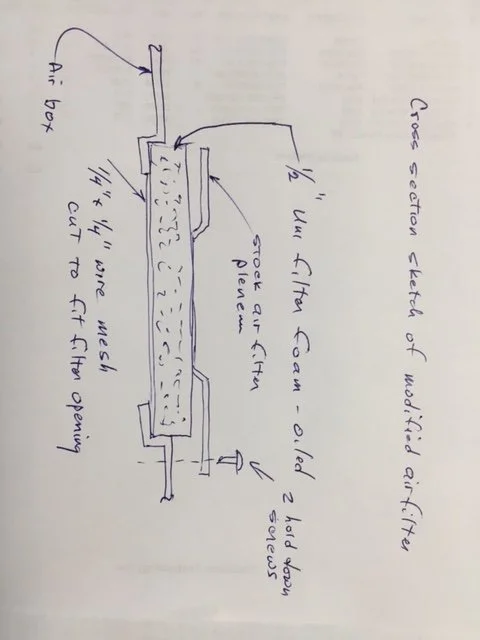 Cross section sketch of modified airfilter
1/2" Uni filter foam - oiled
2 hold down
screws
stock air filter
plenem
Air box
1/4" x 1/4" wire mesh
cut to fit filter opening